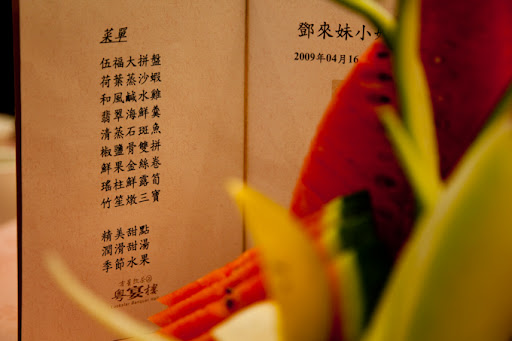 菜單
伍福大拼盤
荷葉蒸沙蝦
和風鹹水雞
翡翠海鮮羹
清蒸石斑魚
椒鹽骨雙拼
鮮果金絲卷
瑤柱鮮露筍
竹笙燉三寶
精美甜點
潤滑甜湯
季節水果
粵宴樓
鄧來妹小
2009年04月16